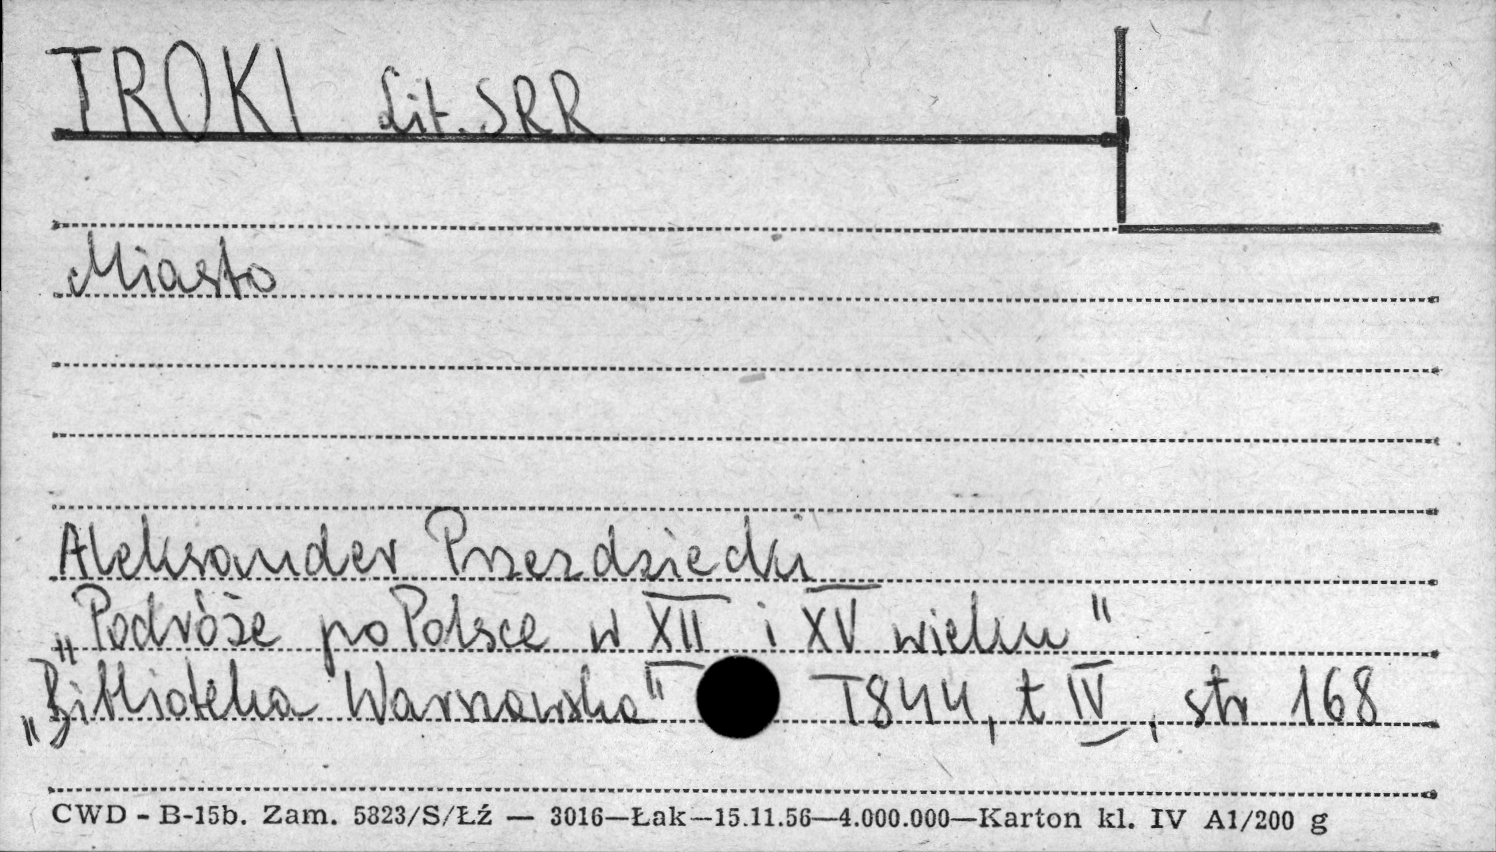 TROKI Lit. SRR
Miasto
Aleksander Przezdziecki
„Podróże po Polsce w XII i XV wieku"
„Biblioteka Warszawska" 1844, t IV, str 168
CWD - B-15b. Zam. 5823/S/Łź — 3016—Łak—15.11.56—4.000.000—Karton kl. IV A1/200 g